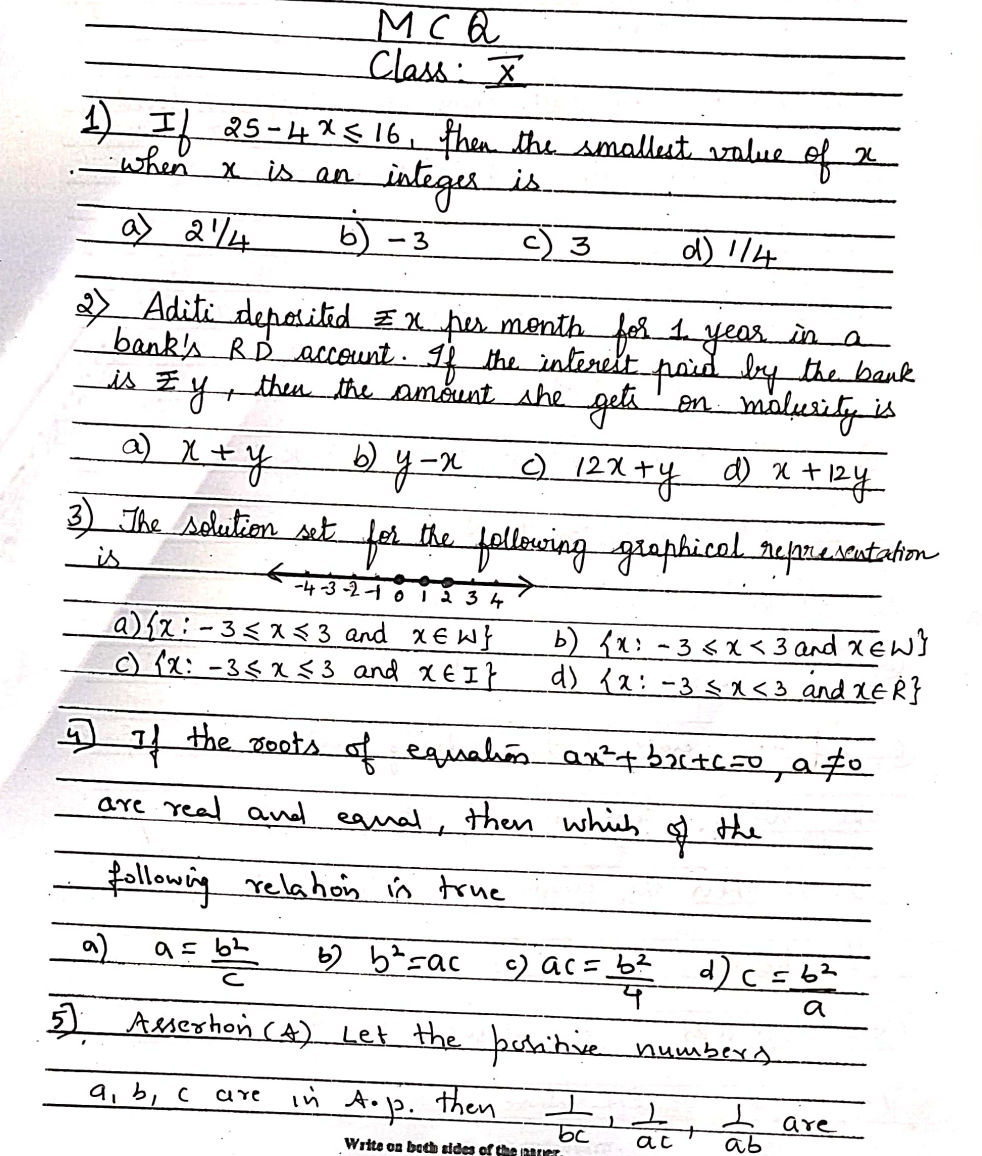 MCQ
Class: X
1) If 25-4x ≤ 16, then the smallest value of x
when x is an integer is
a) 2 1/4 b) -3 c) 3 d) 1/4
2) Aditi deposited ₹ x per month for 1 year in a
bank's RD account. If the interest paid by the bank
is ₹ y, then the amount she gets on maturity is
a) x + y b) y - x c) 12x + y d) x + 12y
3) The solution set for the following graphical representation
is
-4 -3 -2 -1 0 1 2 3 4
a) {x : -3 ≤ x ≤ 3 and x ∈ W} b) {x : -3 ≤ x < 3 and x ∈ W}
c) {x : -3 ≤ x ≤ 3 and x ∈ I} d) {x : -3 ≤ x < 3 and x ∈ R}
4) If the roots of equation ax²+bx+c=0, a≠0
are real and equal, then which of the
following relation is true
a) a = b²/c b) b²=ac c) ac = b²/4 d) c = b²/a
5) Assertion (A) Let the positive numbers
a, b, c are in A.p. then 1/bc, 1/ac, 1/ab are
Write on both sides of the paper.